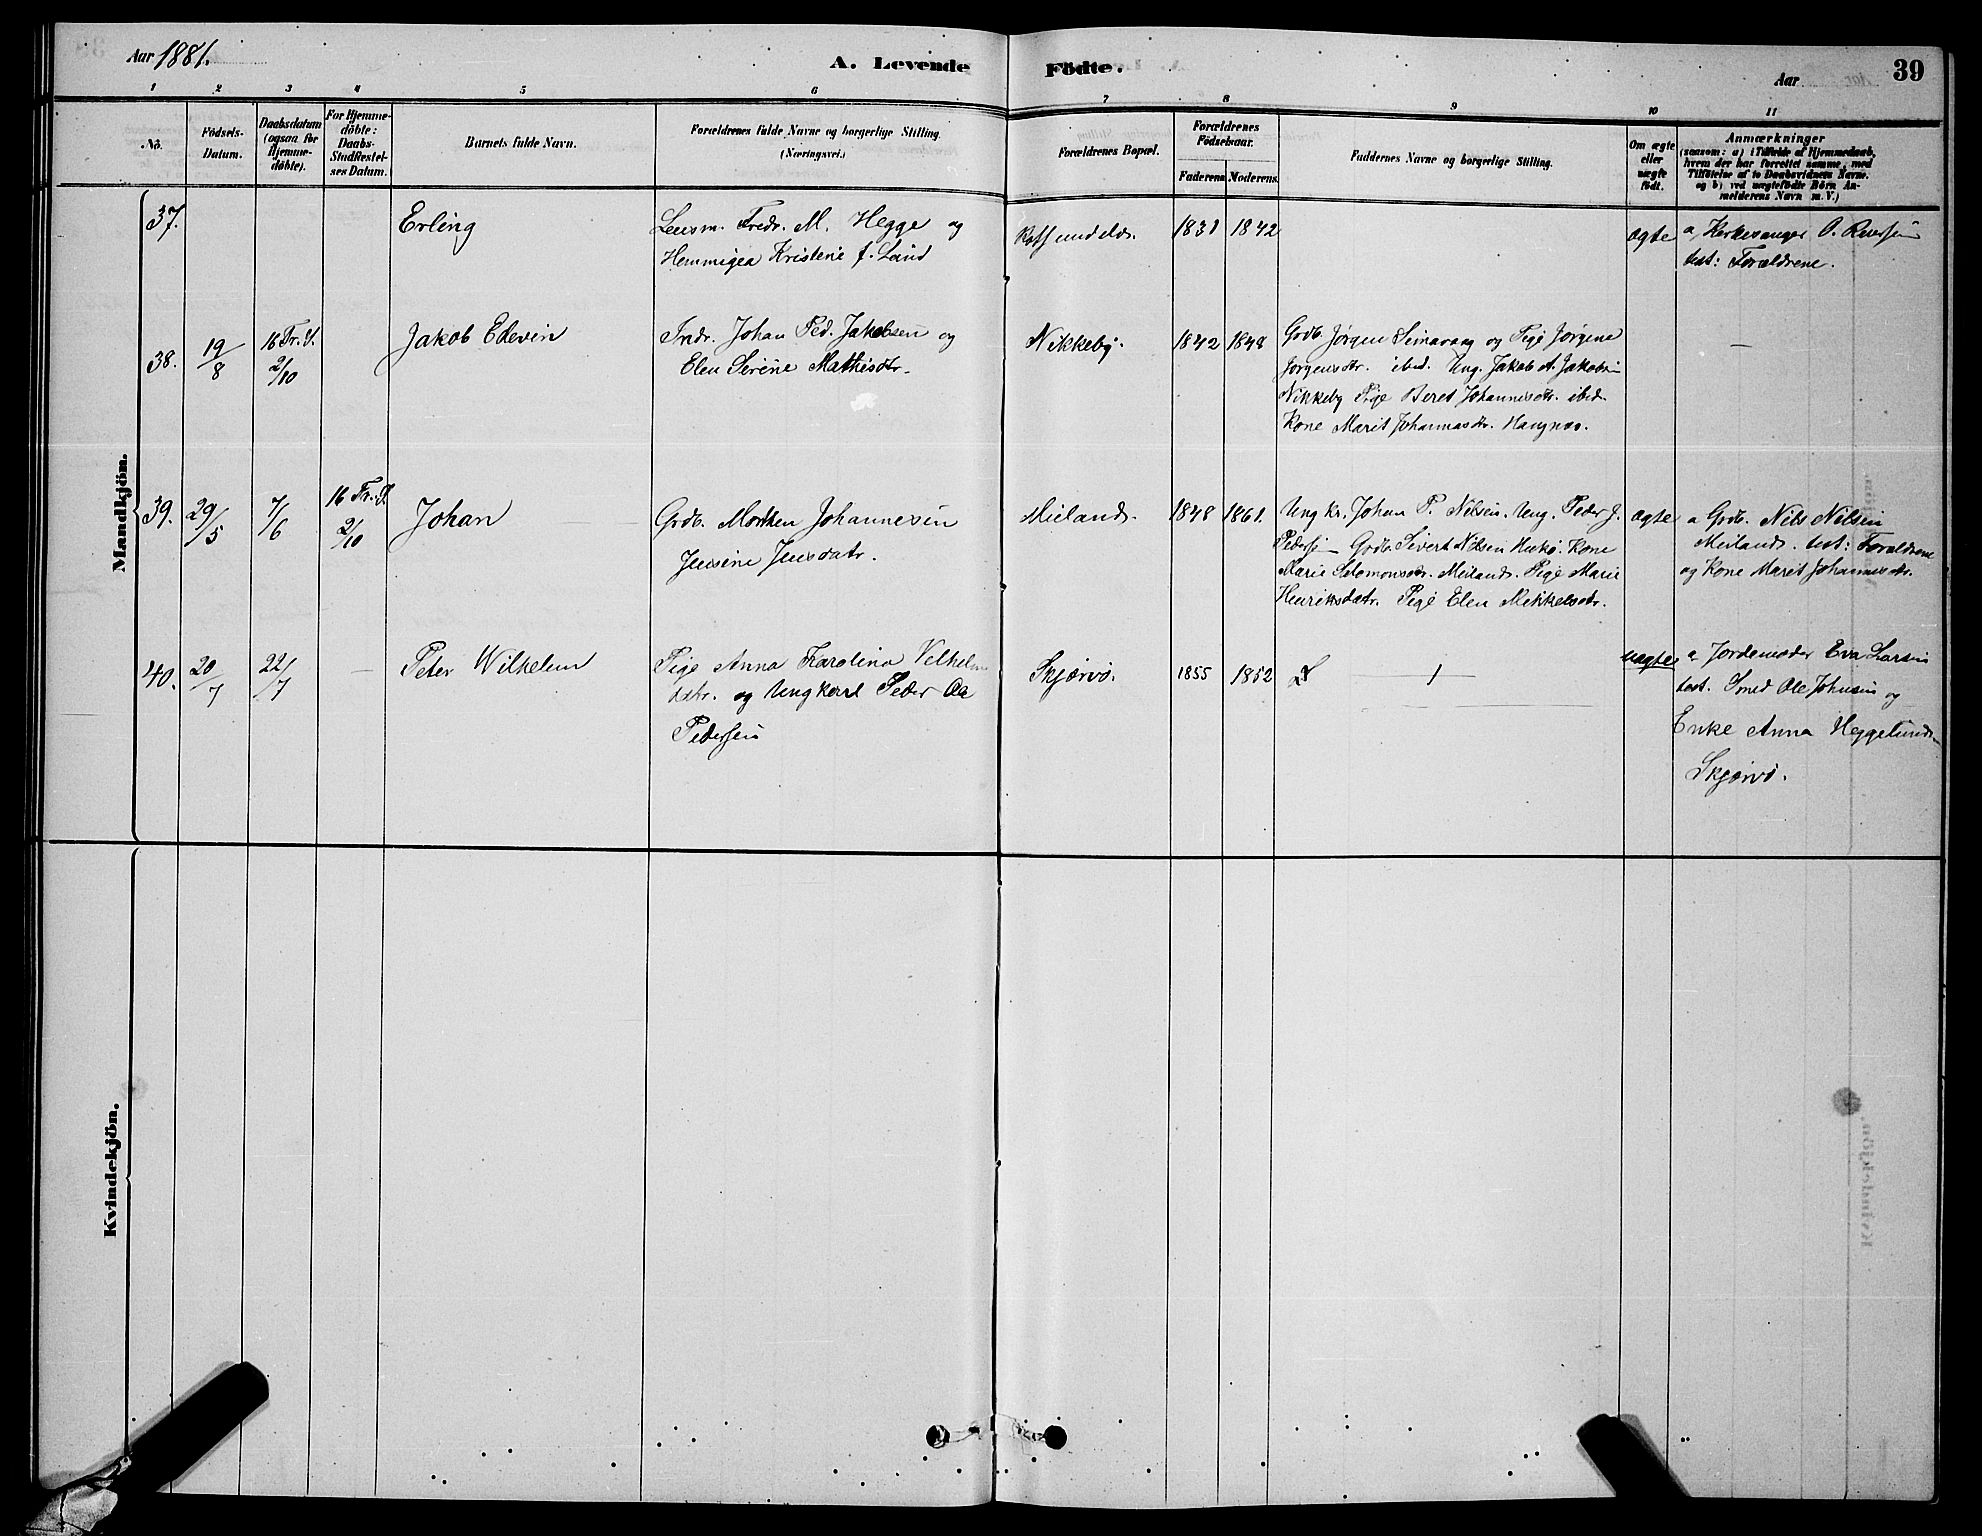 Aar 1881.
A. Levende Födte.
Aar
39
1 2 3 4 5 6 7 8 9 10 11
No.
Födsels-
Datum.
Daabsdatum
(ogsaa for
Hjemme-
döbte).
For Hjemme-
döbte:
Daabs-
Stadfæstel-
ses Datum.
Barnets fulde Navn.
Forældrenes fulde Navne og borgerlige Stilling.
(Næringsvei.)
Forældrenes Bopæl.
Forældrenes
Födselsaar.
Faderens Moderens
Faddernes Navne og borgerlige Stilling.
Om ægte
eller
uægte
födt.
Anmærkninger
(saasom: a) i Tilfælde af Hjemmedaab,
hvem der har forrettet samme, med
Tilföielse af to Daabsvidners Navne.
og b) ved uægtefödte Börn An-
melderens Navn m. V.)
Mandkjön.
37.
Erling
Lensm. Fredr. M. Hegge og
Hemmigea Kristene f. Lund
Rotsundelv.
1831 1842
ægte
a, Kirkesanger O.
test: Forældrene.
38.
19/8
16 Tr. S.
2/10
Jakob Edevin
Indr. Johan Ped. Jakobsen og
Elen Serine Mathisdtr.
Nikkeby.
1842 1848
Grdb. Jørgen Seinavaag og Pige Jørgine
Jørgensdtr. ibid. Ung. Jakob A. Jakobsen
Nikkeby Pige Beret Johannesdtr. ibid
Kone Marit Johannasdtr. Haugnæs.
—
39.
29/5
7/6
16 Tr. S.
2/10
Johan
Grdb. Morten Johannesen
Jensine Jensdatr.
Meiland.
1848 1861.
Ungkr. Johan P. Nilsen. Ung. Peder J.
Pedersen Grdb. Sivert Nilsen Kone
Marie Salomonsdtr. Meiland. Pige Marie
Henriksdatr. Pige Elen Mikkelsdtr.
ægte
a Grdb. Nils Nilsen
Meiland. test: Forældrene
og Kone Marit Johannesdtr.
40.
20/7
22/7
—
Peter Wilhelm
Pige Anna Karolina Velhelm
datr. og Ungkarl Peder Aa
Pedersen
Skjærvø.
1855 1852
uægte
a Jordemoder Eva Larsen
test. Smed Ole Johnsen og
Enke Anna Heggelund
Skjærvø.
Kvindekjön.